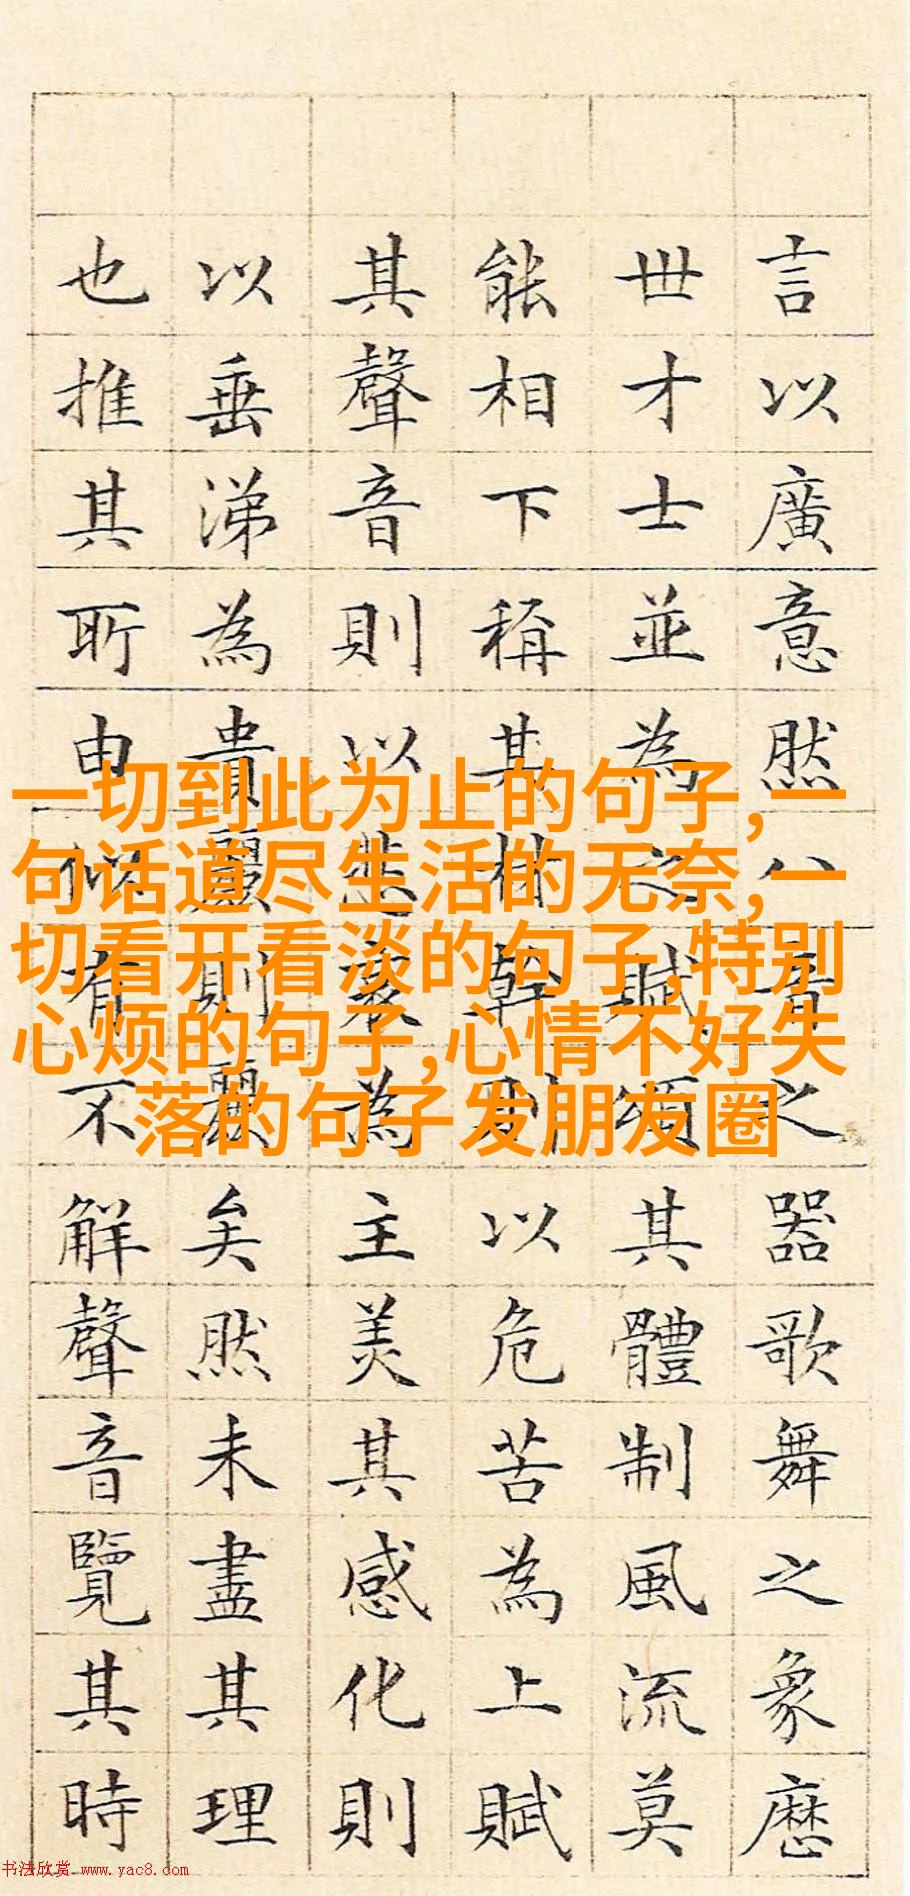 言以廣意然八音之器歌舞之象歷
世才士並為之賦頌其體制風流莫
能相下稱其材幹則以危苦為上賦
其聲音則以悲哀為主美其感化則
以垂涕為貴麗則麗矣然未盡其理
也推其所由似有不解聲音覽其時
一切到此为止的句子,一
句话道尽生活的无奈,一
切看开看淡的句子,特别
心烦的句子,心情不好失
落的句子发朋友圈
书法欣赏 www.yac8.com